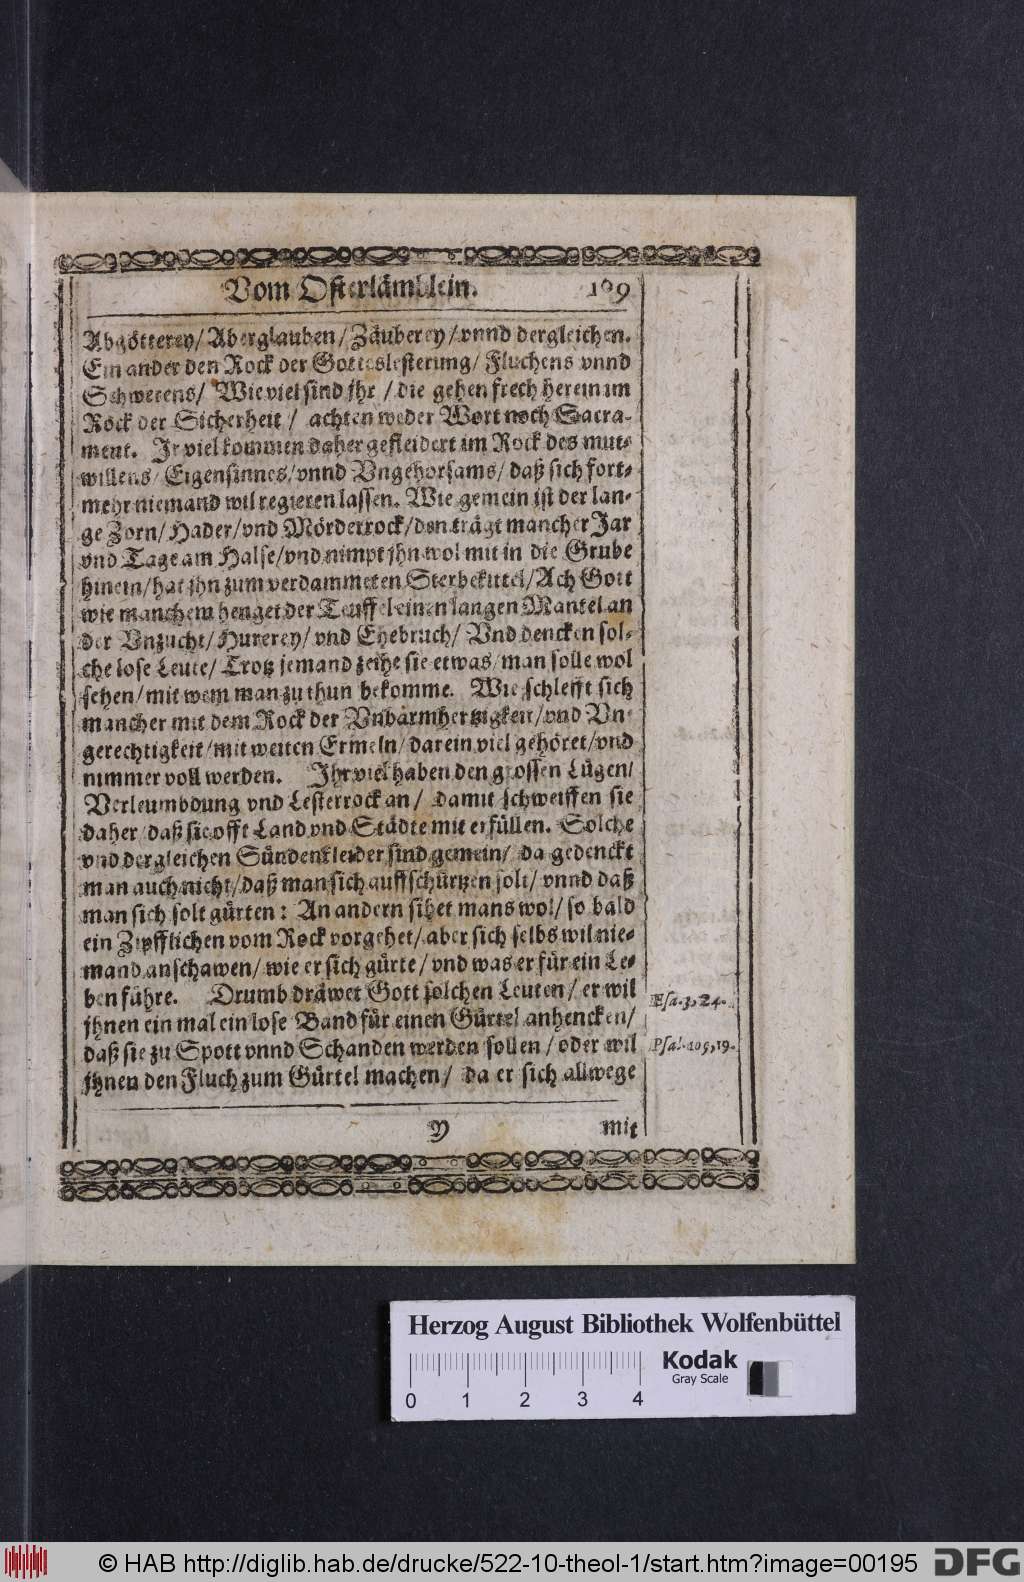 Vom Osterlämblein. 109
Abgötterey/ Aberglauben/ Zäuberey/ vnnd dergleichen.
Ein ander den Rock der Gotteslesterung/ Fluchens vnnd
Schwerens/ Wie viel sind jhr/ die gehen frech herein im
Rock der Sicherheit/ achten weder Wort noch Sacra-
ment. Ir viel kommen daher gekleidert im Rock des mut-
willens/ Eigensinnes/ vnnd Vngehorsams/ daß sich fort-
mehr niemand wil regieren lassen. Wie gemein ist der lan-
ge Zorn/ Hader/ vnd Mörderrock/ den trägt mancher Jar
vnd Tage am Halse/ vnd nimpt jhn wol mit in die Grube
hinein/ hat jhn zum verdammeten Sterbekittel/ Ach Gott
wie manchem henget der Teuffel einen langen Mantel an
der Vnzucht/ Hurerey/ vnd Ehebruch/ Vnd dencken sol-
che lose Leute/ Trotz jemand zeihe sie etwas/ man solle wol
sehen/ mit wem man zu thun bekomme. Wie schlefft sich
mancher mit dem Rock der Vnbarmhertzigkeit/ vnd Vn-
gerechtigkeit/ mit weiten Ermeln/ darein viel gehöret/ vnd
nimmer voll werden. Ihr viel haben den grossen Lügen/
Verleumbdung vnd Lesterrock an/ damit schweiffen sie
daher/ daß sie offt Land vnd Städte mit erfüllen. Solche
vnd dergleichen Sündenkleider sind gemein/ da gedenckt
man auch nicht/ daß man sich auffschürtzen solt/ vnnd daß
man sich solt gürten: An andern sihet mans wol/ so bald
ein Zipfflichen vom Rock vorgehet/ aber sich selbs wil nie-
mand anschawen/ wie er sich gürte/ vnd was er für ein Le-
ben führe. Drumb dräwet Gott solchen Leuten/ er wil
jhnen ein mal ein lose Band für einen Gürtel anhencken/
daß sie zu Spott vnnd Schanden werden sollen/ oder wil
jhnen den Fluch zum Gürtel machen/ da er sich allwege
Esa. 3, 24.
Psal. 109, 19.
mit
Herzog August Bibliothek Wolfenbüttel
Kodak
Gray Scale
0 1 2 3 4
© HAB http://diglib.hab.de/drucke/522-10-theol-1/start.htm?image=00195
DFG